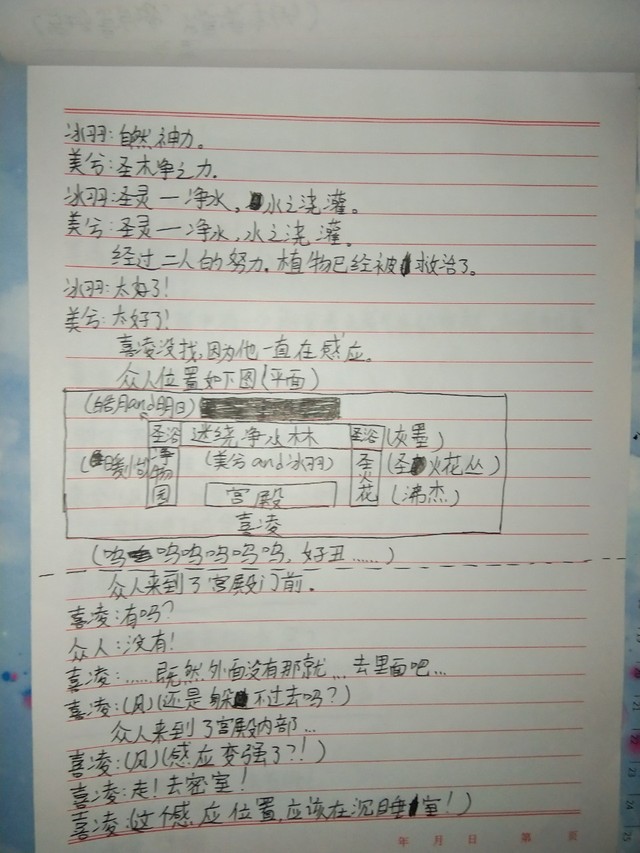 冰羽:自然神力。
美兮:圣木净之力.
冰羽:圣灵一净水,水之浇灌。
美兮:圣灵一净水,水之浇灌。
经过二人的努力.植物已经被救治了。
冰羽:太好了!
美兮:太好了!
喜凌没找,因为他一直在感应。
众人位置如下图(平面)
(皓月and明日)
圣浴 迷绕净水林 圣浴 (灰墨)
植物园 (美兮and冰羽) 圣火花 (圣火花丛)
宫殿 (沸杰)
喜凌
(呜呜呜呜呜呜,好丑……)
众人来到了宫殿门前.
喜凌:有吗?
众人:没有!
喜凌:……既然外面没有那就…去里面吧…
喜凌:(风)(还是躲不过去吗?)
众人来到了宫殿内部…
喜凌:(风)(感应变强了?!)
喜凌:走!去密室!
喜凌:(这个感应位置,应该在沉睡室!)
年 月 日 第 页